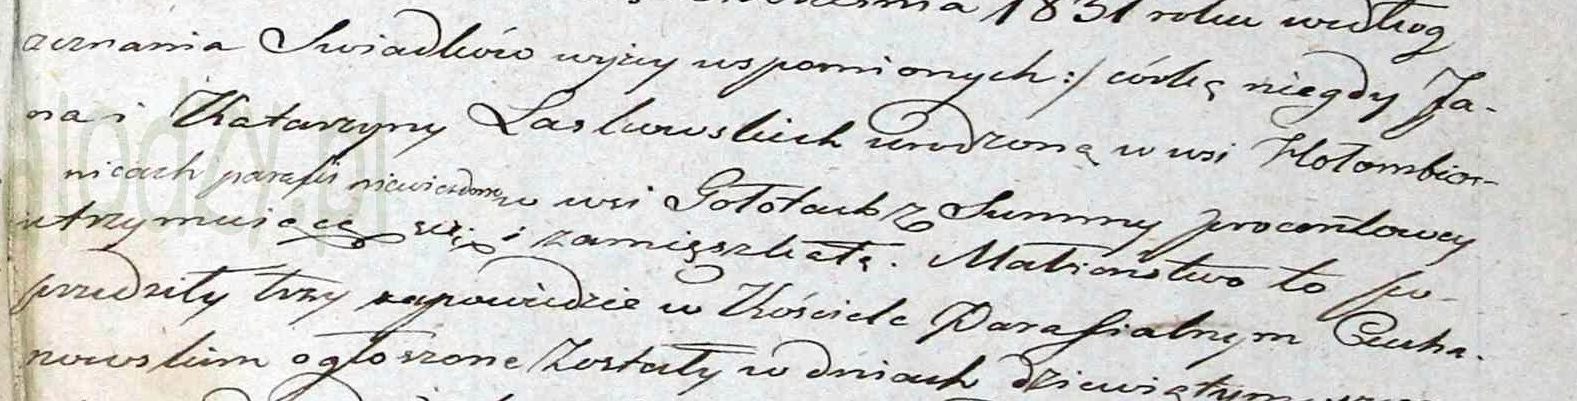 1831 roku według
zeznania Swiadków wyży wspomionych :/ córkę niegdy Ja-
na i Katarzyny Laskowskich urodzoną w wsi Hołombio-
nicach parafii niewiadomey w wsi Gołotach z Summy procentowey
utrzymuiącą się i zamięszkałą. Małżeństwo to po-
przedziły trzy zapowiedzie w Kościele Parafialnym
nowskim ogłoszone zostały w dniach dziewiątym